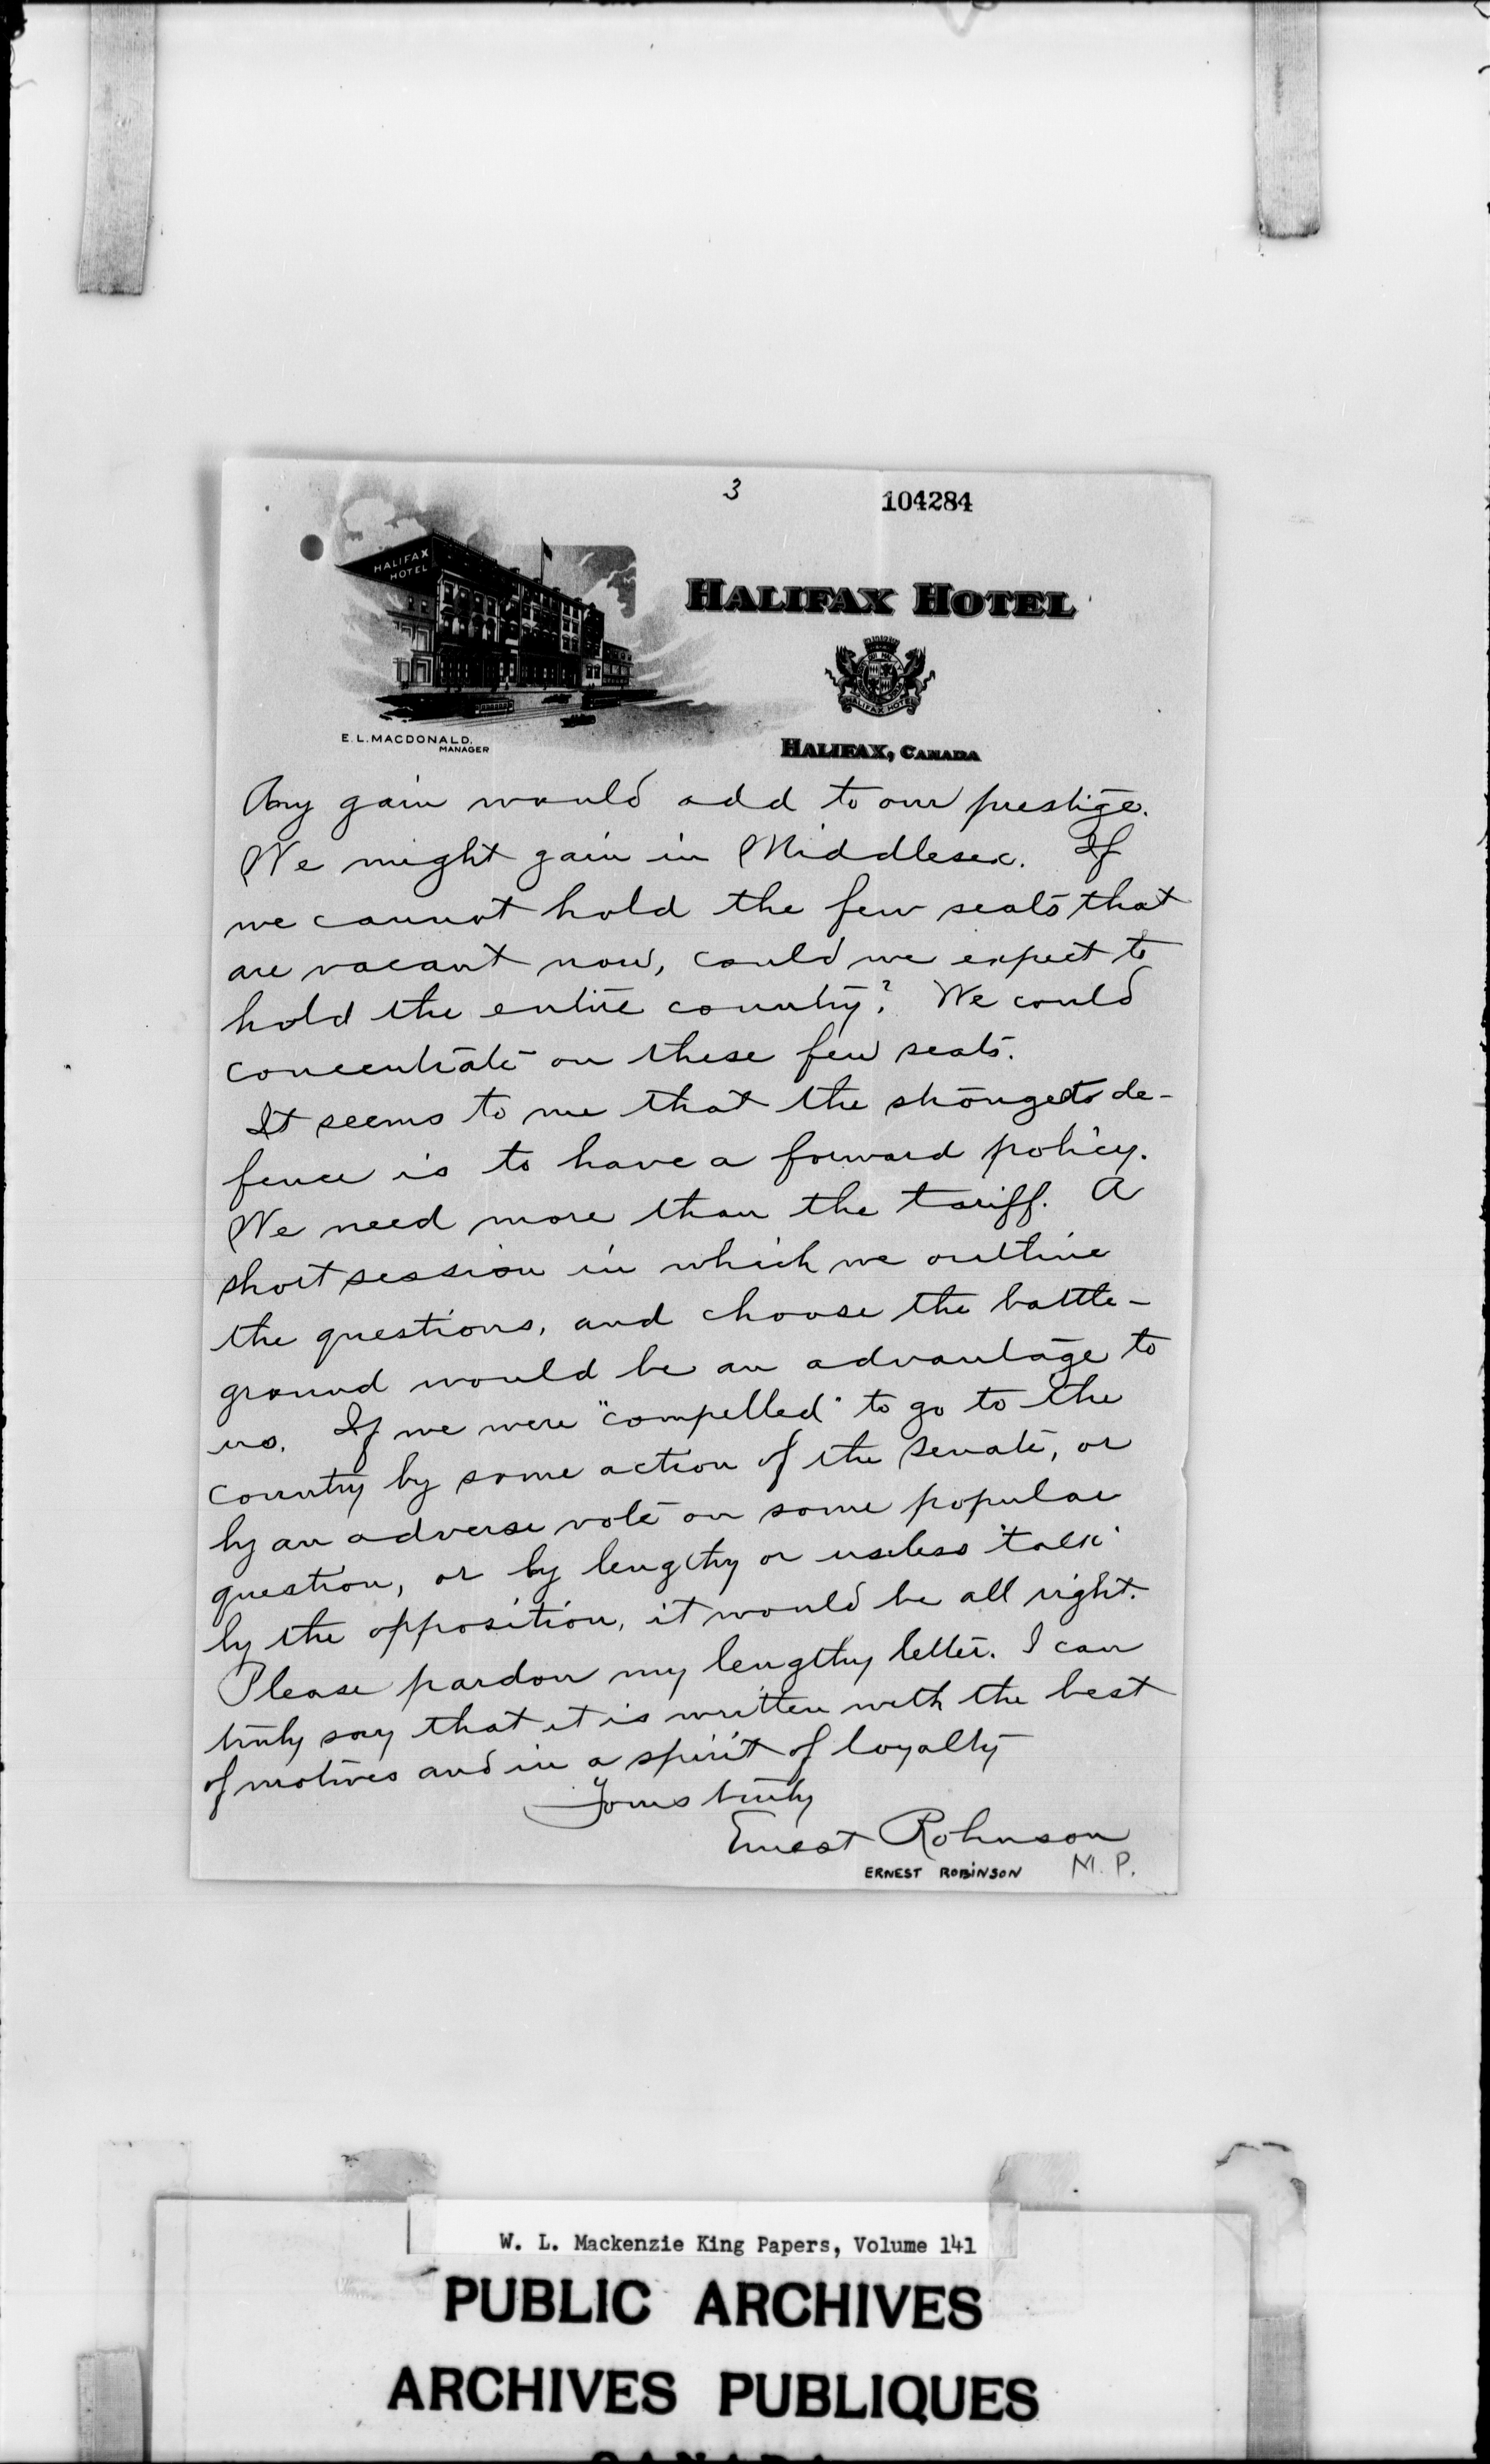 3
104284
HALIFAX HOTEL
HALIFAX HOTEL
HALIFAX HOTEL
E. L. MACDONALD,
MANAGER
HALIFAX, CANADA
Any gain would add to our prestige.
We might gain in Middlesex. If
we cannot hold the few seats that
are vacant now, could we expect to
hold the entire country? We could
concentrate on these few seats.
It seems to me that the strongest de-
fence is to have a forward policy.
We need more than the tariff. A
short session in which we outline
the questions, and choose the battle-
ground would be an advantage to
us. If we were "compelled" to go to the
country by some action of the Senate, or
by an adverse vote on some popular
question, or by lengthy or useless "talk"
by the opposition, it would be all right.
Please pardon my lengthy letter. I can
truly say that it is written with the best
of motives and in a spirit of loyalty
Yours truly
Ernest Robinson
ERNEST ROBINSON M.P.
W. L. Mackenzie King Papers, Volume 141
PUBLIC ARCHIVES
ARCHIVES PUBLIQUES
CANADA